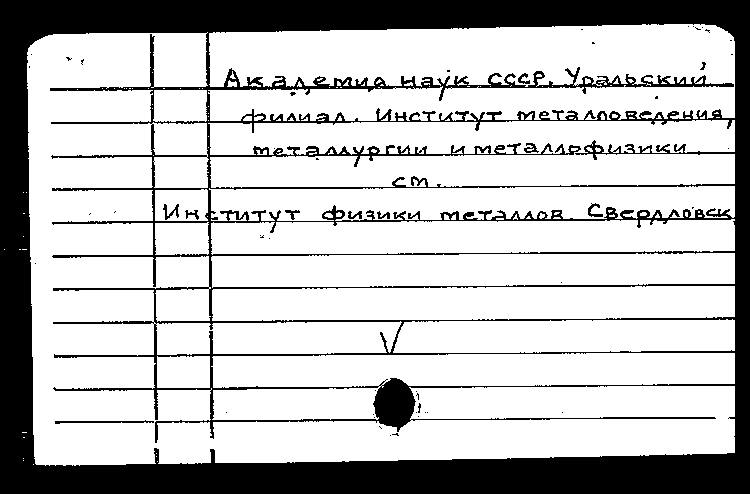 Академиа наук СССР. Уральский
филиал. Институт металловедения,
металлургии и металлофизики.
см.
Институт физики металлов. Свердловск
V